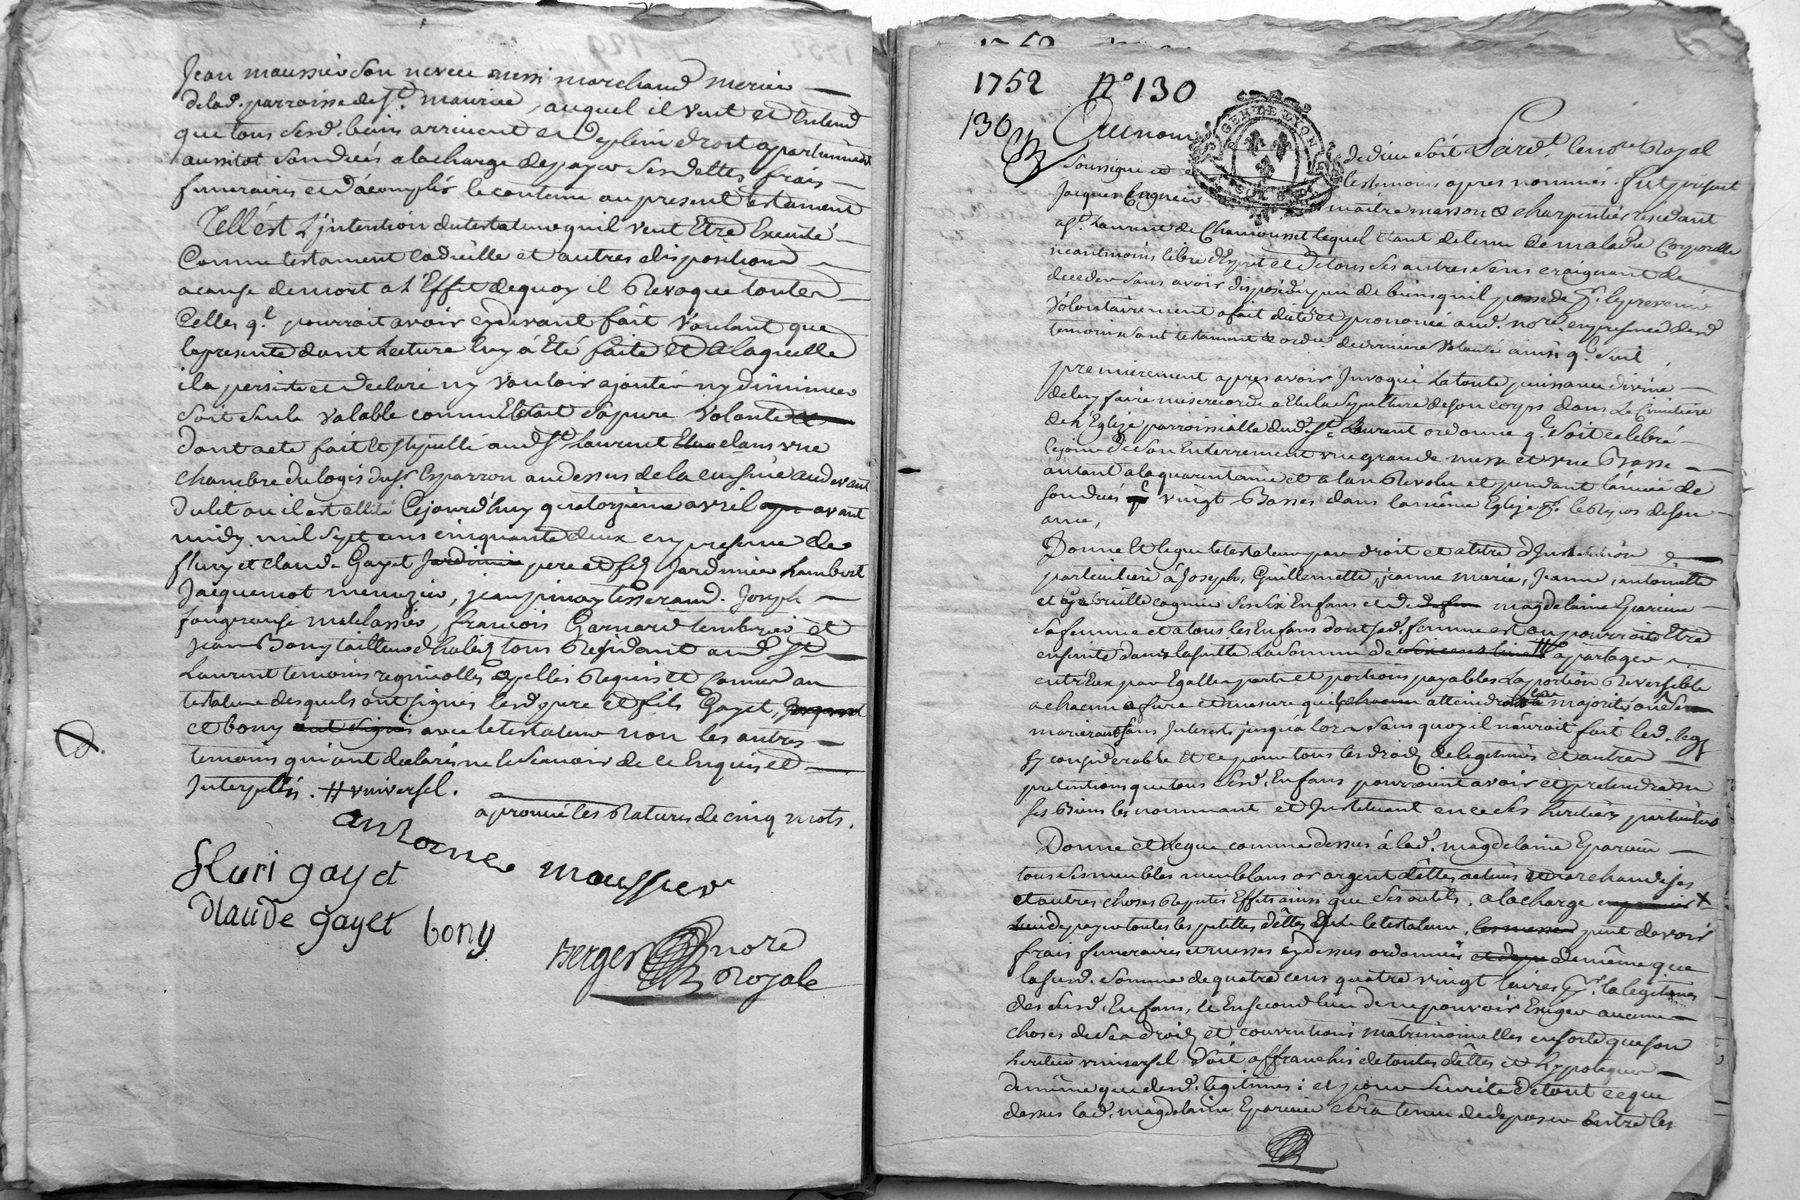 Jean maussier son neveu aussi marchand
de lad. parroisse de St. maurice, auquel il veut et entend
que tous sesd. biens arrivent et de plein droit apartiennent
aussitot son decés a la charge de payer ses dettes frais
funeraires et d'acomplir le contenu au present testament
Tell'est L'jntention du testateur qu'il veut Etre Executé
comme testament codicille et autres dispositions
a cause de mort a l'Effet de quoy il Revoque toutes
Celles ql. pourroit avoir cydevant fait Voulant que
la presente dont Lecture luy á Eté faite et a laquelle
il a persisté et declaré ny vouloir ajouter ny diminuer
soit seule valable comme Etant sa pure volonté
dont acte fait et stipullé aud. St. Laurent dans une
chambre du logis du Sr. Esparron au dessus de la cuisine audevant
du lit ou il est allité Cejourd'huy quatorzieme avril avant
midy mil sept cens cinquante deux en presence de
fleury et claude Gayet pere et fils Jardiniers Lambert
Jacquemot menuzier, jean pinay tisserand, Joseph
fougerouse, francois
jean Bony tailleur d'habits tous Residents aud. St.
Laurent temoins Requis et connu au
testateur desquels ont signés lesd. pere et fils Gayet,
et bony avec le testateur non les autres
temoins qui ont declarés ne le scavoir de ce Enquis et
Interpellés. # universel.
aprouvé les Ratures de cinq mots.
antoine maussier
fleuri gayet
Claude gayet bony
Berger nore
Royale
1752 N° 130
130
Au nom de dieu soit Pardt. le nore Royal
soussigné et les temoins apres nommés fut present
Jacques Cognier maitre masson & charpentier residant
a St. Laurent de Chamousset lequel Etant detenu de maladie Corporelle
neantmoins libre d'Esprit et de tous ses autres sens craignant de
deceder sans avoir disposé du peu de biens quil possede pr. le prevenir
Volontairement a fait dicté et prononcé aud. nore. en presence desd.
temoins sont testament & ordre de derniere volonté ainsi q. suit
premierement apres avoir Jnvoqué la toute puissance divine
de luy faire misericorde a Elu la sepulture de son corps dans Le Cimetiere
de l'Eglize parroissialle dud. St. Laurent ordonne q. soit celebré
le jour de son Enterrement une grande messe et une Basse
autant a la quarantaine et a l'an Revolu et pendant l'année de
son decés vingt Basses dans la même Eglize pr. le Repos de son
ame,
Donne et legue le testateur par droit et a titre d'Jnstitution
particuliere à Joseph, Guillemette, jeanne marie, Jeanne, antoinette
et Gabrielle cognier ses six Enfans et de magdelaine Eparcieu
sa femme et a tous les Enfans dont sad. femme est ou pourroit Etre
enceinte dans la suitte La somme de # a partager
entr'Eux par Egalles parts et portions payables La portion Reversible
a chacun a fure et mesure quil atteindront leur majorité ou se
marieront sans Jnterets jusqu'a lors sans quoy il n'auroit fait led. legs
sy considerable et ce pour tous les droits de legitimes et autres
pretentions que tous sesd. Enfans pourroient avoir et pretendre sur
ses Biens les nommant et Jnstituant en ce ses heritiers particuliers
Donne et Legue comme dessus á lad. magdelaine Eparcieu
tous ses meubles meublans or argent dettes actives marchandises
et autres choses Reputés Effets ainsi que ses outils, a la charge
de payer toutes les petittes dettes du le testateur, peut devoir
frais funeraires et messes cy dessus ordonnés de même que
la susd. somme de quatre cens quatre vingt livres pr. la legitimes
des susd. Enfans, et En second lieu de ne pouvoir Exiger aucunes
choses de ses droits et conventions matrimonielles en sorte que son
heritier universel soit affranchis de toutes dettes et hypoteques
de même que desd. legitimes: et pour seureté de tout ce que
dessus lad. magdelaine Eparcieu sera tenue de deposer Entre les